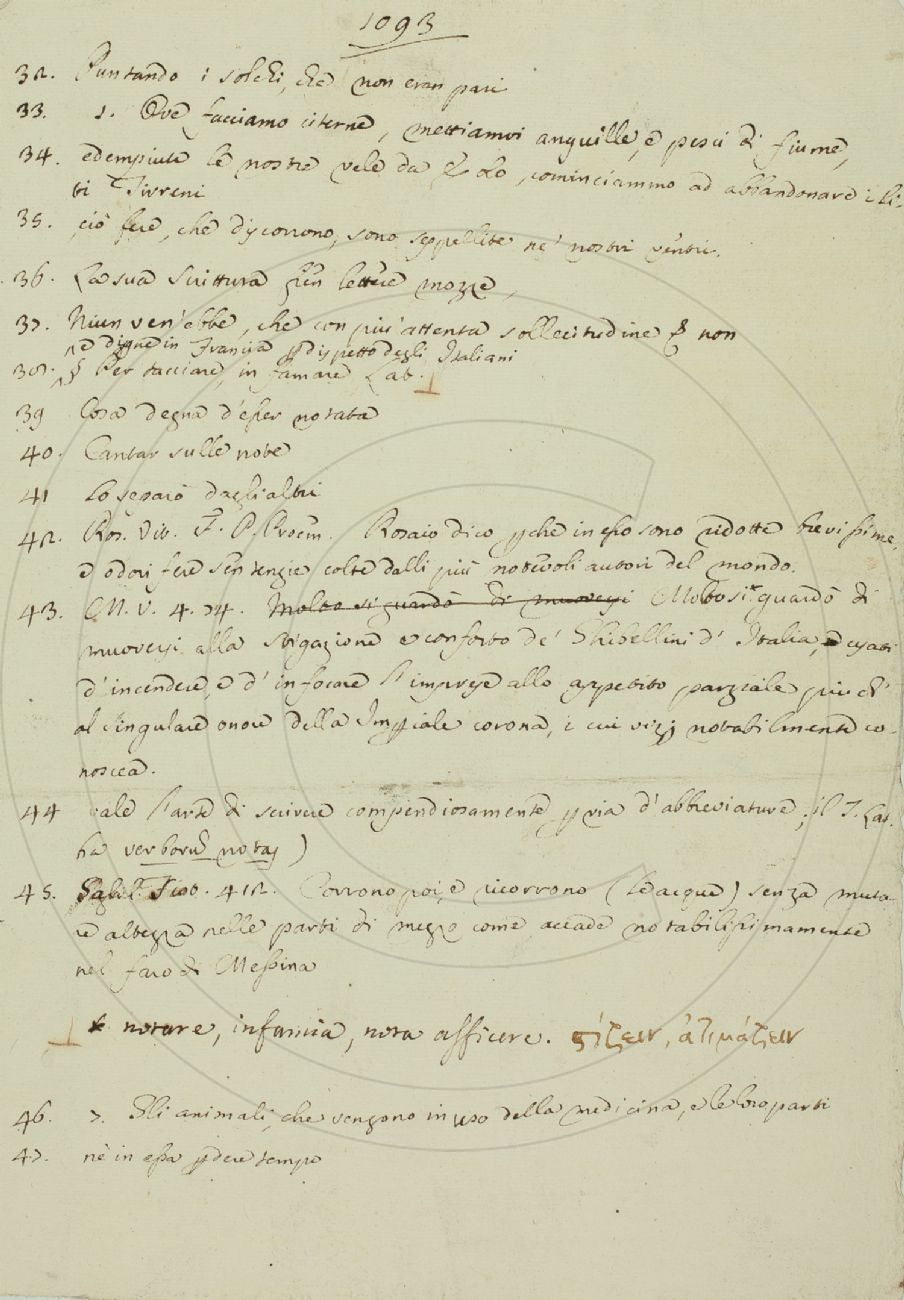 1093
32. Puntando i solchi, che non eran pari
33. 1. Ove facciamo citerne, mettiamvi anguille, e pesci di fiume,
34. ed empiute le nostre vele da Eolo, cominciammo ad abbandonare i li-
ti Tirreni
35. ciò fere, che discorrono, sono seppellite ne' nostri ventri.
36. La sua scrittura fien lettere mozze,
37. Niun ven'ebbe, che con più attenta sollecitudine non
e digne in Francia dispetto degli Italiani
38. Per tacciare, infamare Lat.
39 Cosa degna d'esser notata
40. Cantar sulle note
41 Lo segnò dagli altri
42. Ros. Vit. F. P. Proem. Rosaio dico pche in esso sono ridotte brevissime,
e odorifere sentenzie colte dalli più notevoli autori del mondo.
43. M. V. 4. 74. Molto si guardò di muoversi Molto si guardò di
muoversi alla stigazione e conforto de' Ghibellini d' Italia, e usati
d'incendere, e d' infocare l' imprese allo appetito parziale più ch'
al singulare onore della Impiale corona, i cui vizj notabilmente co-
noscea.
44 vale l'arte di scrivere compendiosamente p via d'abbreviature, il T. Lat.
ha verborū notas )
45. Corrono poi, e ricorrono (le acque) senza muta-
re altezza nelle parti di mezzo come accade notabilissimamente
nel faro di Messina
notare, infamia, nota afficere. ςίζειν, ἀτιμάζειν
46. 7. Gli animali, che vengono in uso della medicina, e le loro parti
47. nè in essa pdere tempo